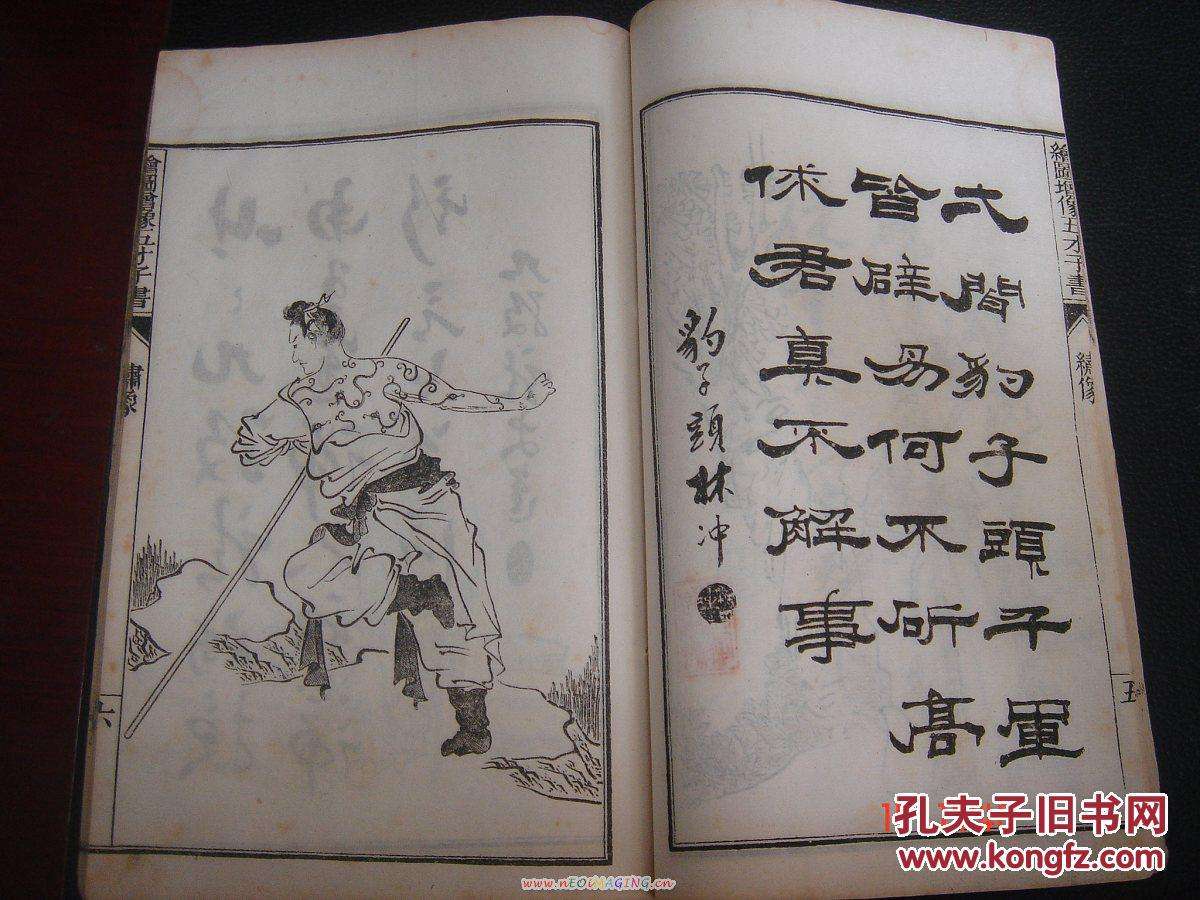 繪圖增像五才子書
繡像
五
久聞豹子頭千軍
皆辟易何不斫高
俅君真不解事
豹子頭林冲
繪圖增像五才子書
繡像
六
孔夫子旧书网
www.kongfz.com
www.nEOiMAGING.cn